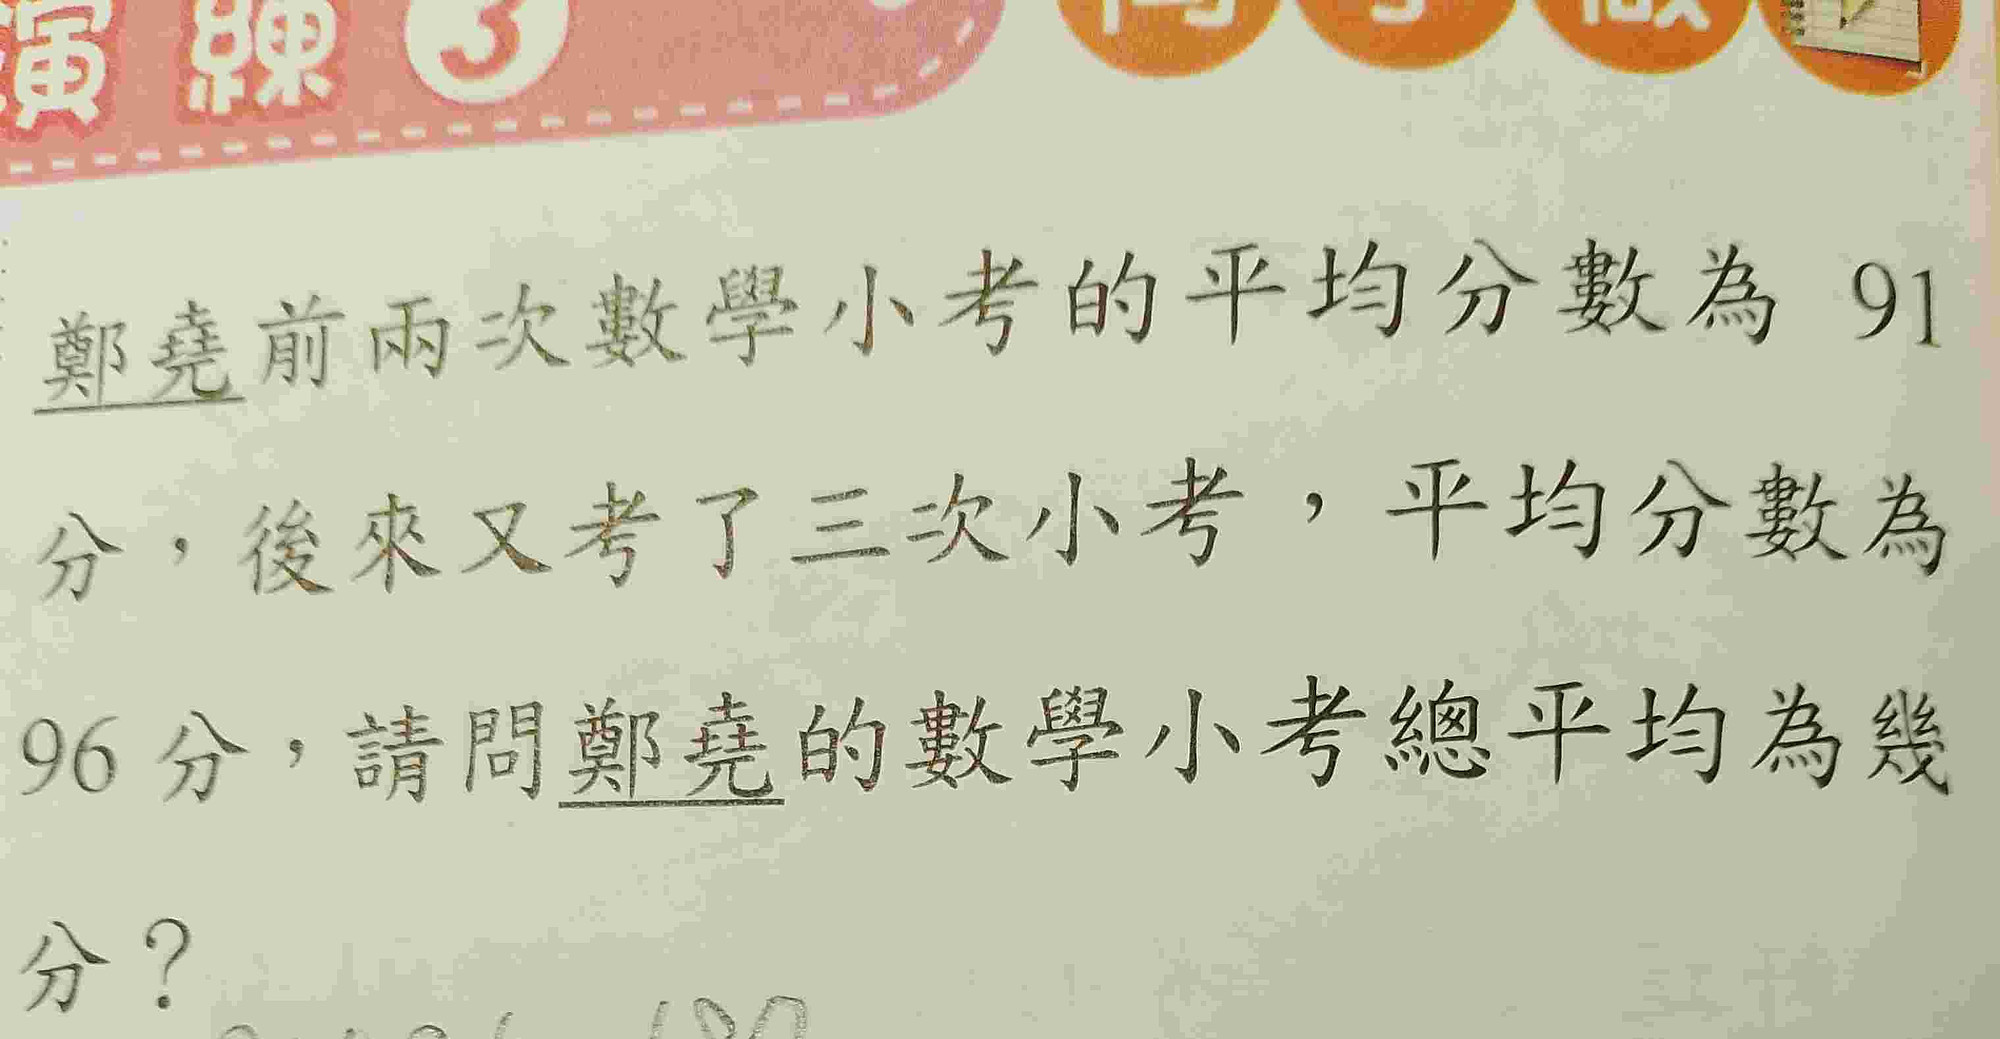 演練3
鄭堯前兩次數學小考的平均分數為 91
分，後來又考了三次小考，平均分數為
96 分，請問鄭堯的數學小考總平均為幾
分？